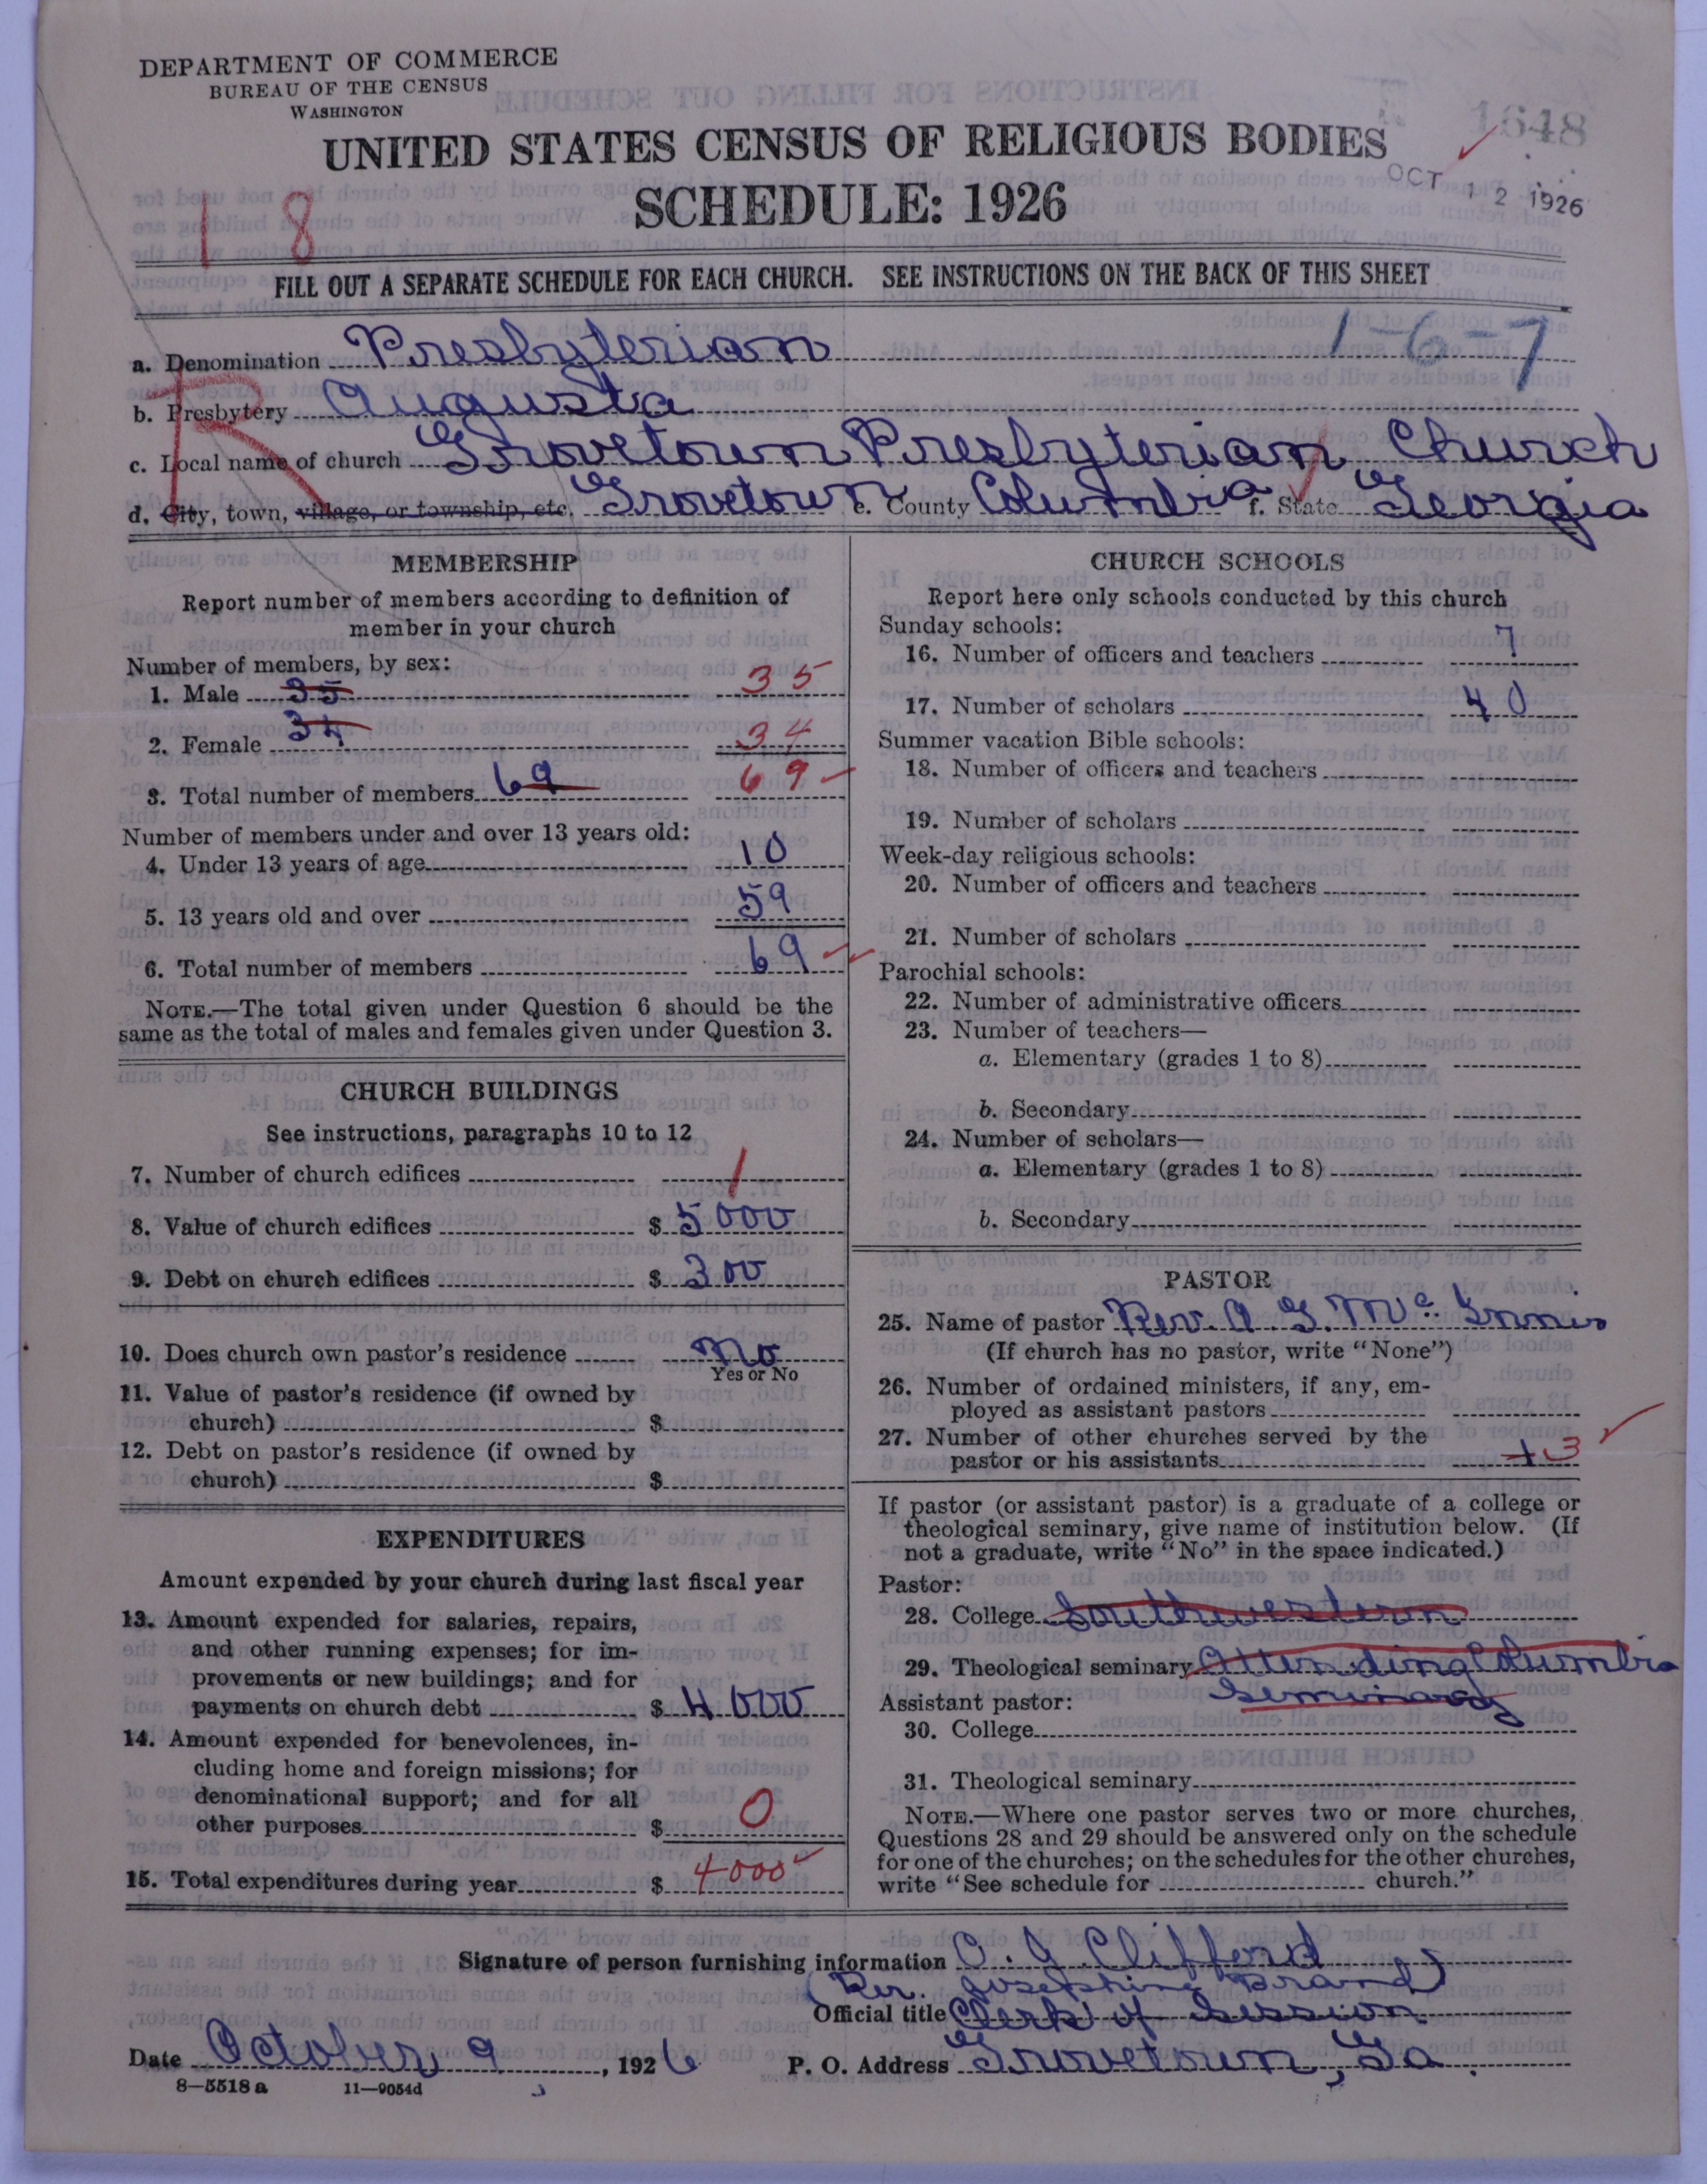 DEPARTMENT OF COMMERCE
BUREAU OF THE CENSUS
WASHINGTON
1648
UNITED STATES CENSUS OF RELIGIOUS BODIES
SCHEDULE: 1926
OCT 12 1926
1 8
FILL OUT A SEPARATE SCHEDULE FOR EACH CHURCH. SEE INSTRUCTIONS ON THE BACK OF THIS SHEET
1-6-7
a. Denomination Presbyterian
R
b. Presbytery Augusta
c. Local name of church Grovetown Presbyterian Church
d. City, town, village, or township, etc. Grovetown e. County Columbia f. State Georgia
MEMBERSHIP
Report number of members according to definition of
member in your church
Number of members, by sex:
1. Male 35 35
2. Female 34 34
3. Total number of members 69 69
Number of members under and over 13 years old:
4. Under 13 years of age 10
5. 13 years old and over 59
6. Total number of members 69
NOTE.—The total given under Question 6 should be the
same as the total of males and females given under Question 3.
CHURCH BUILDINGS
See instructions, paragraphs 10 to 12
7. Number of church edifices 1
8. Value of church edifices $ 5000
9. Debt on church edifices $ 300
10. Does church own pastor's residence No
Yes or No
11. Value of pastor's residence (if owned by
church) $
12. Debt on pastor's residence (if owned by
church) $
EXPENDITURES
Amount expended by your church during last fiscal year
13. Amount expended for salaries, repairs,
and other running expenses; for im-
provements or new buildings; and for
payments on church debt $ 4000
14. Amount expended for benevolences, in-
cluding home and foreign missions; for
denominational support; and for all
other purposes $ 0
15. Total expenditures during year $ 4000
CHURCH SCHOOLS
Report here only schools conducted by this church
Sunday schools:
16. Number of officers and teachers 7
17. Number of scholars 40
Summer vacation Bible schools:
18. Number of officers and teachers
19. Number of scholars
Week-day religious schools:
20. Number of officers and teachers
21. Number of scholars
Parochial schools:
22. Number of administrative officers
23. Number of teachers—
a. Elementary (grades 1 to 8)
b. Secondary
24. Number of scholars—
a. Elementary (grades 1 to 8)
b. Secondary
PASTOR
25. Name of pastor Rev. A. G. McInnis
(If church has no pastor, write "None")
26. Number of ordained ministers, if any, em-
ployed as assistant pastors
27. Number of other churches served by the
pastor or his assistants 3
If pastor (or assistant pastor) is a graduate of a college or
theological seminary, give name of institution below. (If
not a graduate, write "No" in the space indicated.)
Pastor:
28. College Southwestern
29. Theological seminary Attending Columbia
Seminary
Assistant pastor:
30. College
31. Theological seminary
NOTE.—Where one pastor serves two or more churches,
Questions 28 and 29 should be answered only on the schedule
for one of the churches; on the schedules for the other churches,
write "See schedule for church."
Signature of person furnishing information O. J. Clifford
(Per. Josephine Brand)
Official title Clerk of Session
Date October 9, 1926 P. O. Address Grovetown, Ga.
8—5518 a 11—9054d